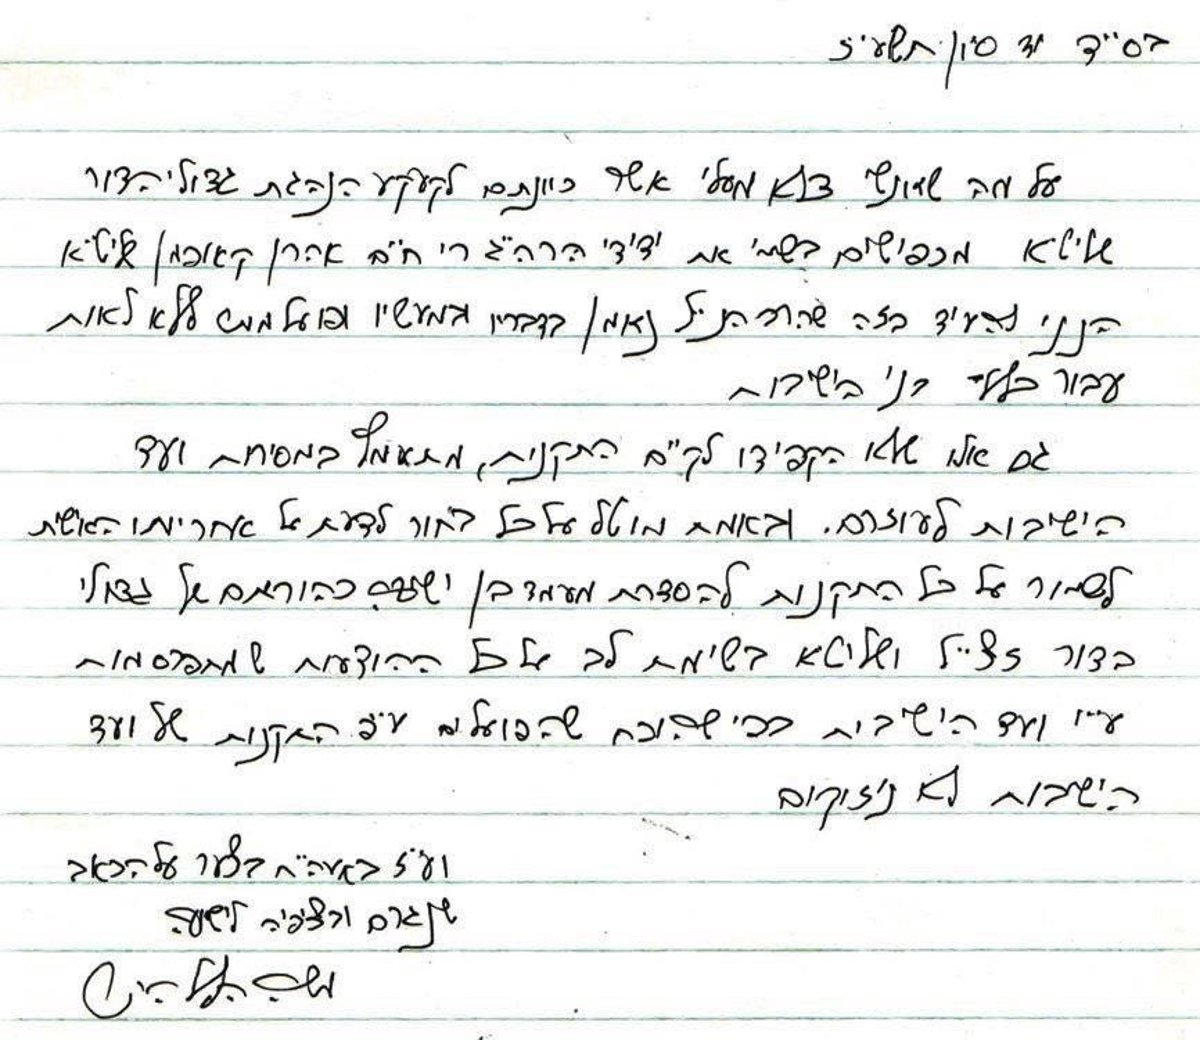 בס"ד יד סיון תשע"ז
על מה שאנשי דלא מעלי אשר כוונתם לקעקע הנהגת גדולי הדור
שליטא מכפישים בשמי את ידידי הרה"ג רי חים אהרן קאופמן שליט"א
הנני להעיד בזה שהרב הנ"ל נאמן בדבריו ובמעשיו ופועל ממש ללא לאות
עבור כלל בני הישיבות
גם אלו שלא הקפידו לקים התקנות, מתאמץ במסירות ועד
הישיבות לעוזרם. ובאמת מוטל על כל בחור לדעת על אחריותו האישית
לשמור על כל התקנות להסדרת מעמד בן ישיבה כהוראתם של גדולי
הדור זצ"ל ושליטא בשימת לב על כל ההודעות שמתפרסמות
ע"י ועד הישיבות כפי שהוכח שהפועלים ע"פ התקנות של ועד
הישיבות לא ניזוקים
וע"ז באעה"ח בצער על הכאב
שנגרם ובציפיה לישועה
משה הלל הירש